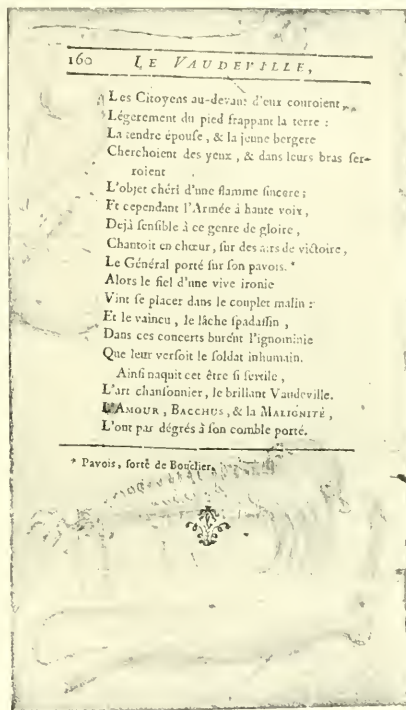 160 LE VAUDEVILLE,
Les Citoyens au-devant d'eux couroient,
Légerement du pied frappant la terre :
La tendre épouſe, & la jeune bergere
Cherchoient des yeux, & dans leurs bras ſer-
roient
L'objet chéri d'une flamme ſincere ;
Et cependant l'Armée à haute voix,
Dejà ſenſible à ce genre de gloire,
Chantoit en chœur, ſur des airs de victoire,
Le Général porté ſur ſon pavois. *
Alors le fiel d'une vive ironie
Vint ſe placer dans le couplet malin :
Et le vaincu, le lâche ſpadaſſin,
Dans ces concerts burent l'ignominie
Que leur verſoit le ſoldat inhumain.
Ainſi naquit cet être ſi fertile,
L'art chanſonnier, le brillant Vaudeville.
L'AMOUR, BACCHUS, & la MALIGNITÉ,
L'ont par dégrés à ſon comble porté.
* Pavois, ſorte de Bouclier.